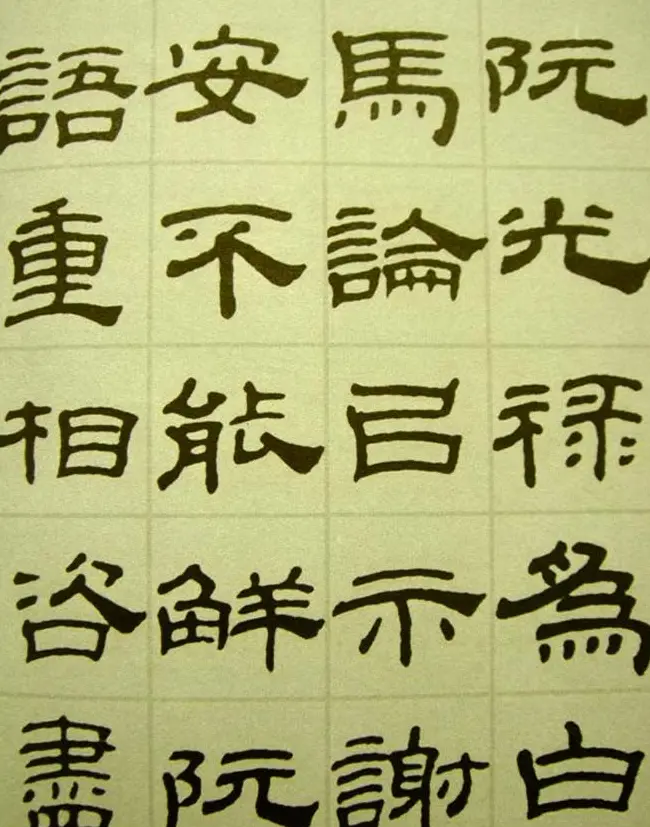 阮光禄爲白
馬論㠯示謝
安不能觧阮
語重相咨盡